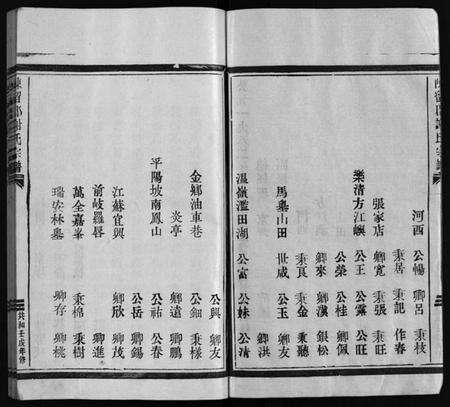 河西 公暢 卿呂 秉枝
秉居 秉記 作春
張家店 卿寬 秉張 秉旺
樂清方江嶼 公王 公露 公旺
公榮 公桂 卿佩
卿來 卿漢 銀松
秉真 秉金 秉聽
馬墓山田 世咸 公玉 卿友
卿洪
溫嶺濫田湖 公富 公妹 公清
公興 卿友
金鄉油車巷 公鈿 秉樣
炎亭 卿遠 卿鵬
平陽坡南鳳山 公祐 公春
公岳 卿錫
江蘇宜興 卿欣 卿茂
前岐羅唇 卿進
萬全嘉峯 秉棉 秉樹
瑞安林垟 卿存 卿桃
陳留郡謝氏宗譜
共和壬戌年修